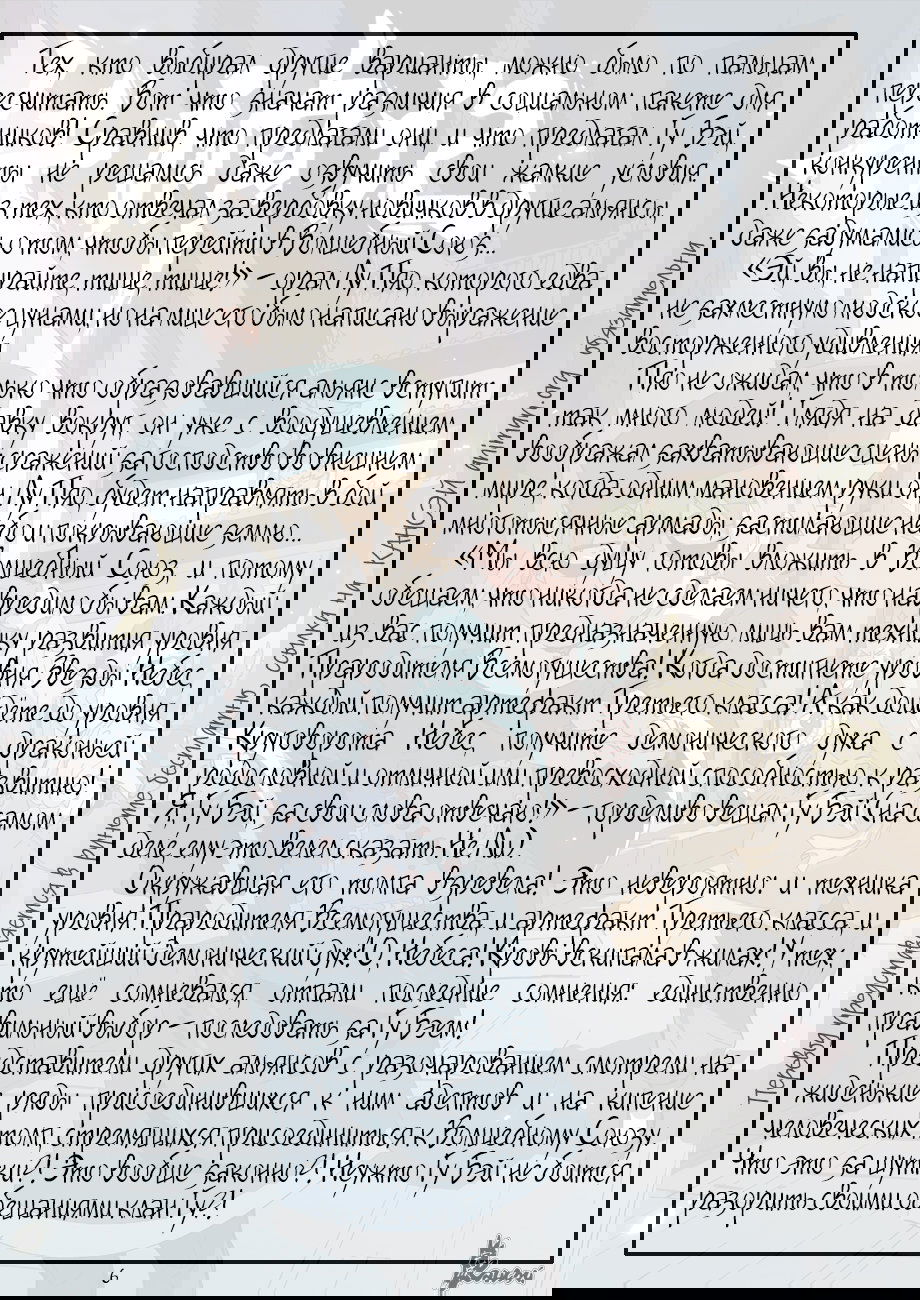 Тех, кто выбирал другие варианты, можно было по пальцам
пересчитать. Вот что значат различия в социальном пакете для
работников! Сравнив, что предлагали они и что предлагал Гу Бэй,
конкуренты не решались даже озвучить свои жалкие условия.
Некоторые из тех, кто отвечал за вербовку новичков в другие альянсы,
даже задумались о том, чтобы перейти в Волшебный Союз...
«Эй вы, не напирайте, тише, тише!» – орал Лу Пяо, которого едва
не захлестнуло людское цунами, но на лице его было написано выражение
восторженного удивления.
Пяо не ожидал, что в только что образовавшийся альянс вступит
так много людей! Глядя на давку вокруг, он уже с воодушевлением
воображал захватывающие сцены сражений за господство во внешнем
мире, когда одним мановением руки он, Лу Пяо, будет направлять в бой
многотысячные армады, застилающие небо и покрывающие землю...
«Мы всю душу готовы вложить в Волшебный Союз, и потому
обещаем, что никогда не сделаем ничего, что навредило бы вам. Каждый
из вас получит предназначенную лишь вам технику развития уровня
Прародителя Всемогущества! Когда достигнете уровня Звезды Небес,
каждый получит артефакт Третьего класса! А как дойдёте до уровня
Круговорота Небес, получите демонического духа с драконьей
родословной и отличной или превосходной способностью к развитию!
Я, Гу Бэй, за свои слова отвечаю!» – горделиво вещал Гу Бэй (на самом
деле ему это велел сказать Не Ли).
Окружавшая его толпа взревела! Это невероятно: и техника
уровня Прародителя Всемогущества, и артефакт Третьего класса, и
крутейший демонический дух! О, Небеса! Кровь вскипала в жилах! У тех,
кто ещё сомневался, отпали последние сомнения: единственно
правильный выбор – последовать за Гу Бэем!
Представители других альянсов с разочарованием смотрели на
жиденькие ряды присоединившихся к ним адептов и на кипение
человеческих толп, стремящихся присоединиться к Волшебному Союзу.
Что это за шутки?! Это вообще законно?! Неужто Гу Бэй не боится
разорить своими обещаниями клан Гу?!
6